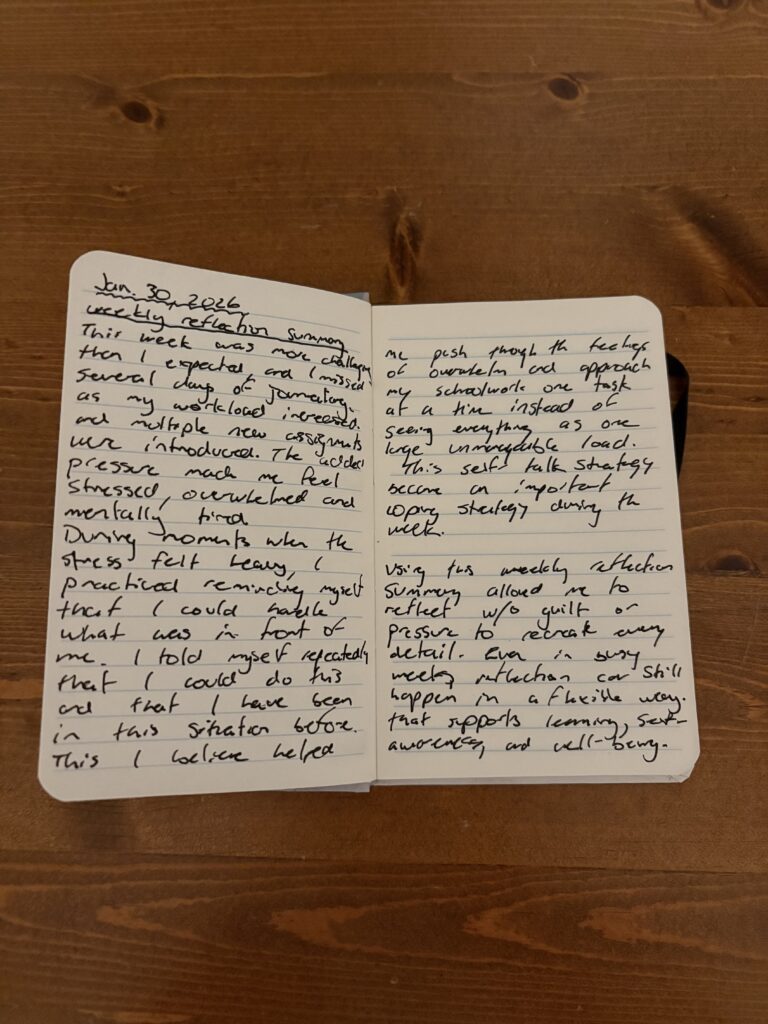 Jan. 30, 2026
weekly reflection summary
This week was more challenging
then I expected, and I missed
several days of journaling.
as my workload increased.
and multiple new assignments
were introduced. The added
pressure made me feel
stressed, overwhelmed and
mentally tired
During moments when the
stress felt heavy, I
practiced reminding myself
that I could handle
what was in front of
me. I told myself repeatedly
that I could do this
and that I have been
in this situation before.
This I believe helped
me push through the feelings
of overwhelm and approach
my schoolwork one task
at a time instead of
seeing everything as one
large unmanageable load.
This self talk strategy
became an important
coping strategy during the
week.
Using this weekly reflection
summary allowed me to
reflect w/o guilt or
pressure to recreate every
detail. Even in busy
weeks reflection can still
happen in a flexible way.
that supports learning, self-
awareness and well-being.